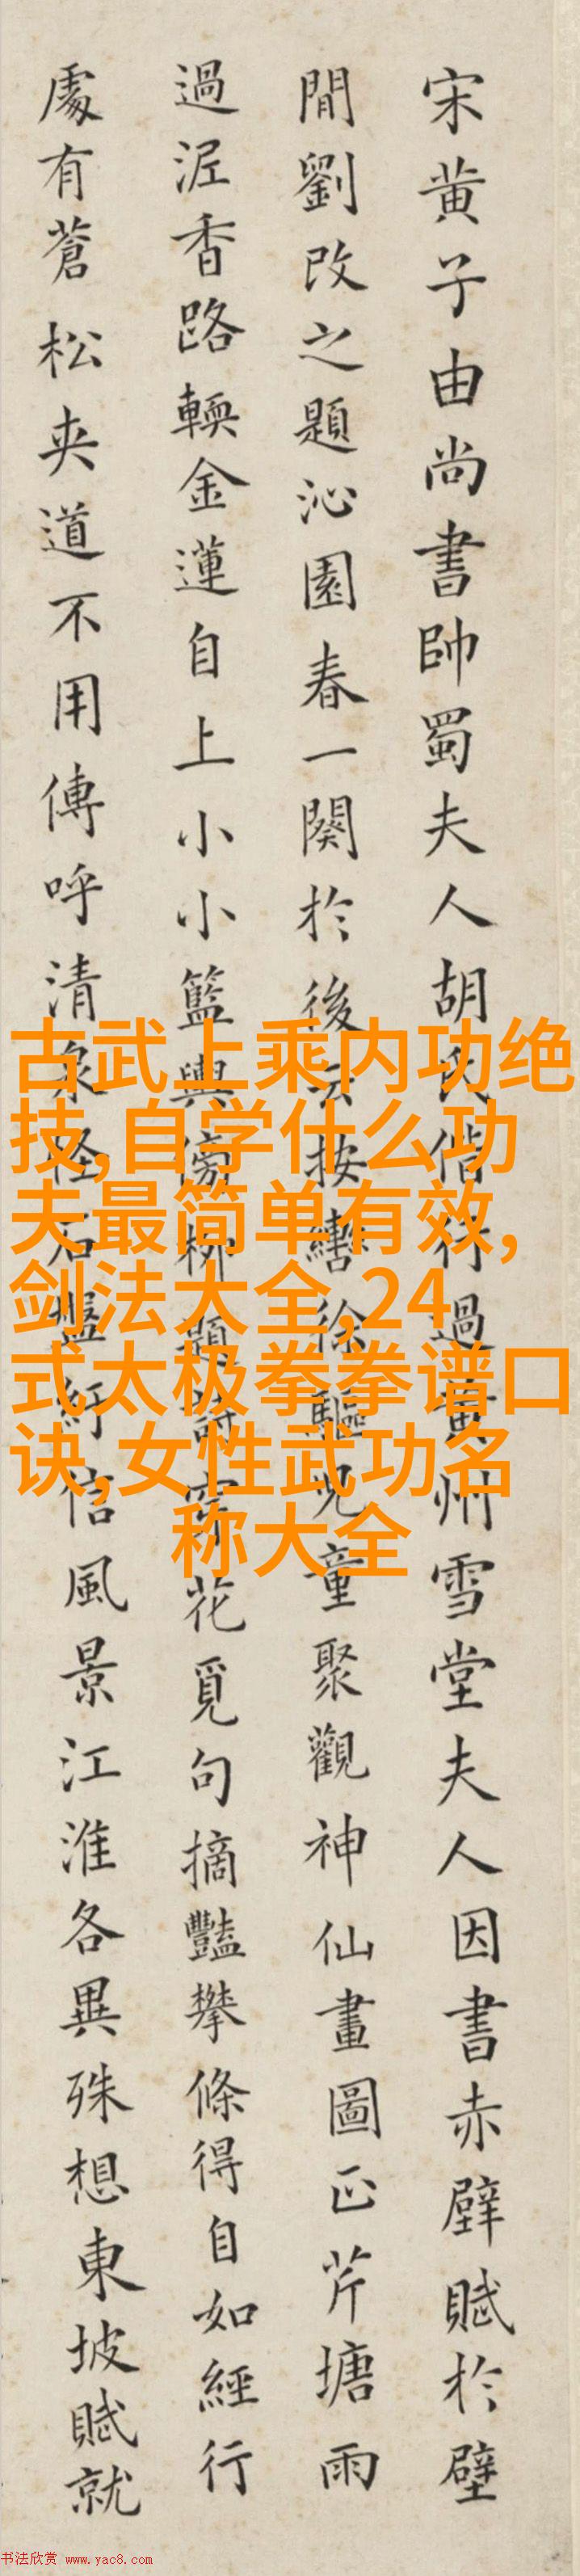 宋黄子由尚書帥蜀夫人胡氏偕行過黄州雪堂夫人因書赤壁賦於壁
間劉改之題沁園春一闋於後云按轡徐驅兒童聚觀神仙畫圖正芹塘雨
過泥香路輭金蓮自上小小籃輿傍柳題詩穿花覓句摘豔攀條得自如經行
處有蒼松夾道不用傳呼清泉怪石盤紆信風景江淮各異殊想東坡賦就
古武上乘内功绝
技,自学什么功
夫最简单有效,
剑法大全,24
式太极拳拳谱口
诀,女性武功名
称大全
书法欣赏 www.yac8.com